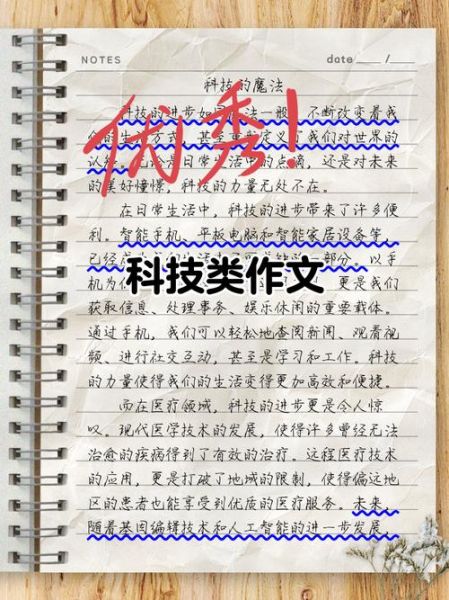 NOTES
date ___ /___
科技的魔法
科技的进步如同魔法一般，不断改变着我
方式，甚至重新定义了我们对世界的
认识。无论是日常生活中的点滴，还是对未来
的美好憧憬，科技的力量无处不在。
优秀！
在日常生活中，科技的进步带来了许多便
利。智能手机、平板电脑和智能家居设备等，
已经成 部分。以手
科技类作文
机为 更是我们
获取信息、处理事务、娱乐休闲的重要载体。
通过手机，我们可以轻松地查阅新闻、观看视
频、进行社交互动，甚至是学习和工作。科技
的力量使得我们的生活变得更加高效和便捷。
而在医疗领域，科技的进步更是令人惊
叹。现代医学技术的发展，使得许多曾经无法
治愈的疾病得到了有效的治疗。远程医疗技术
的应用，更是打破了地域的限制，使得偏远地
区的患者也能享受到优质的医疗服务。未来，
随着基因编辑技术和人工智能的进一步发展，